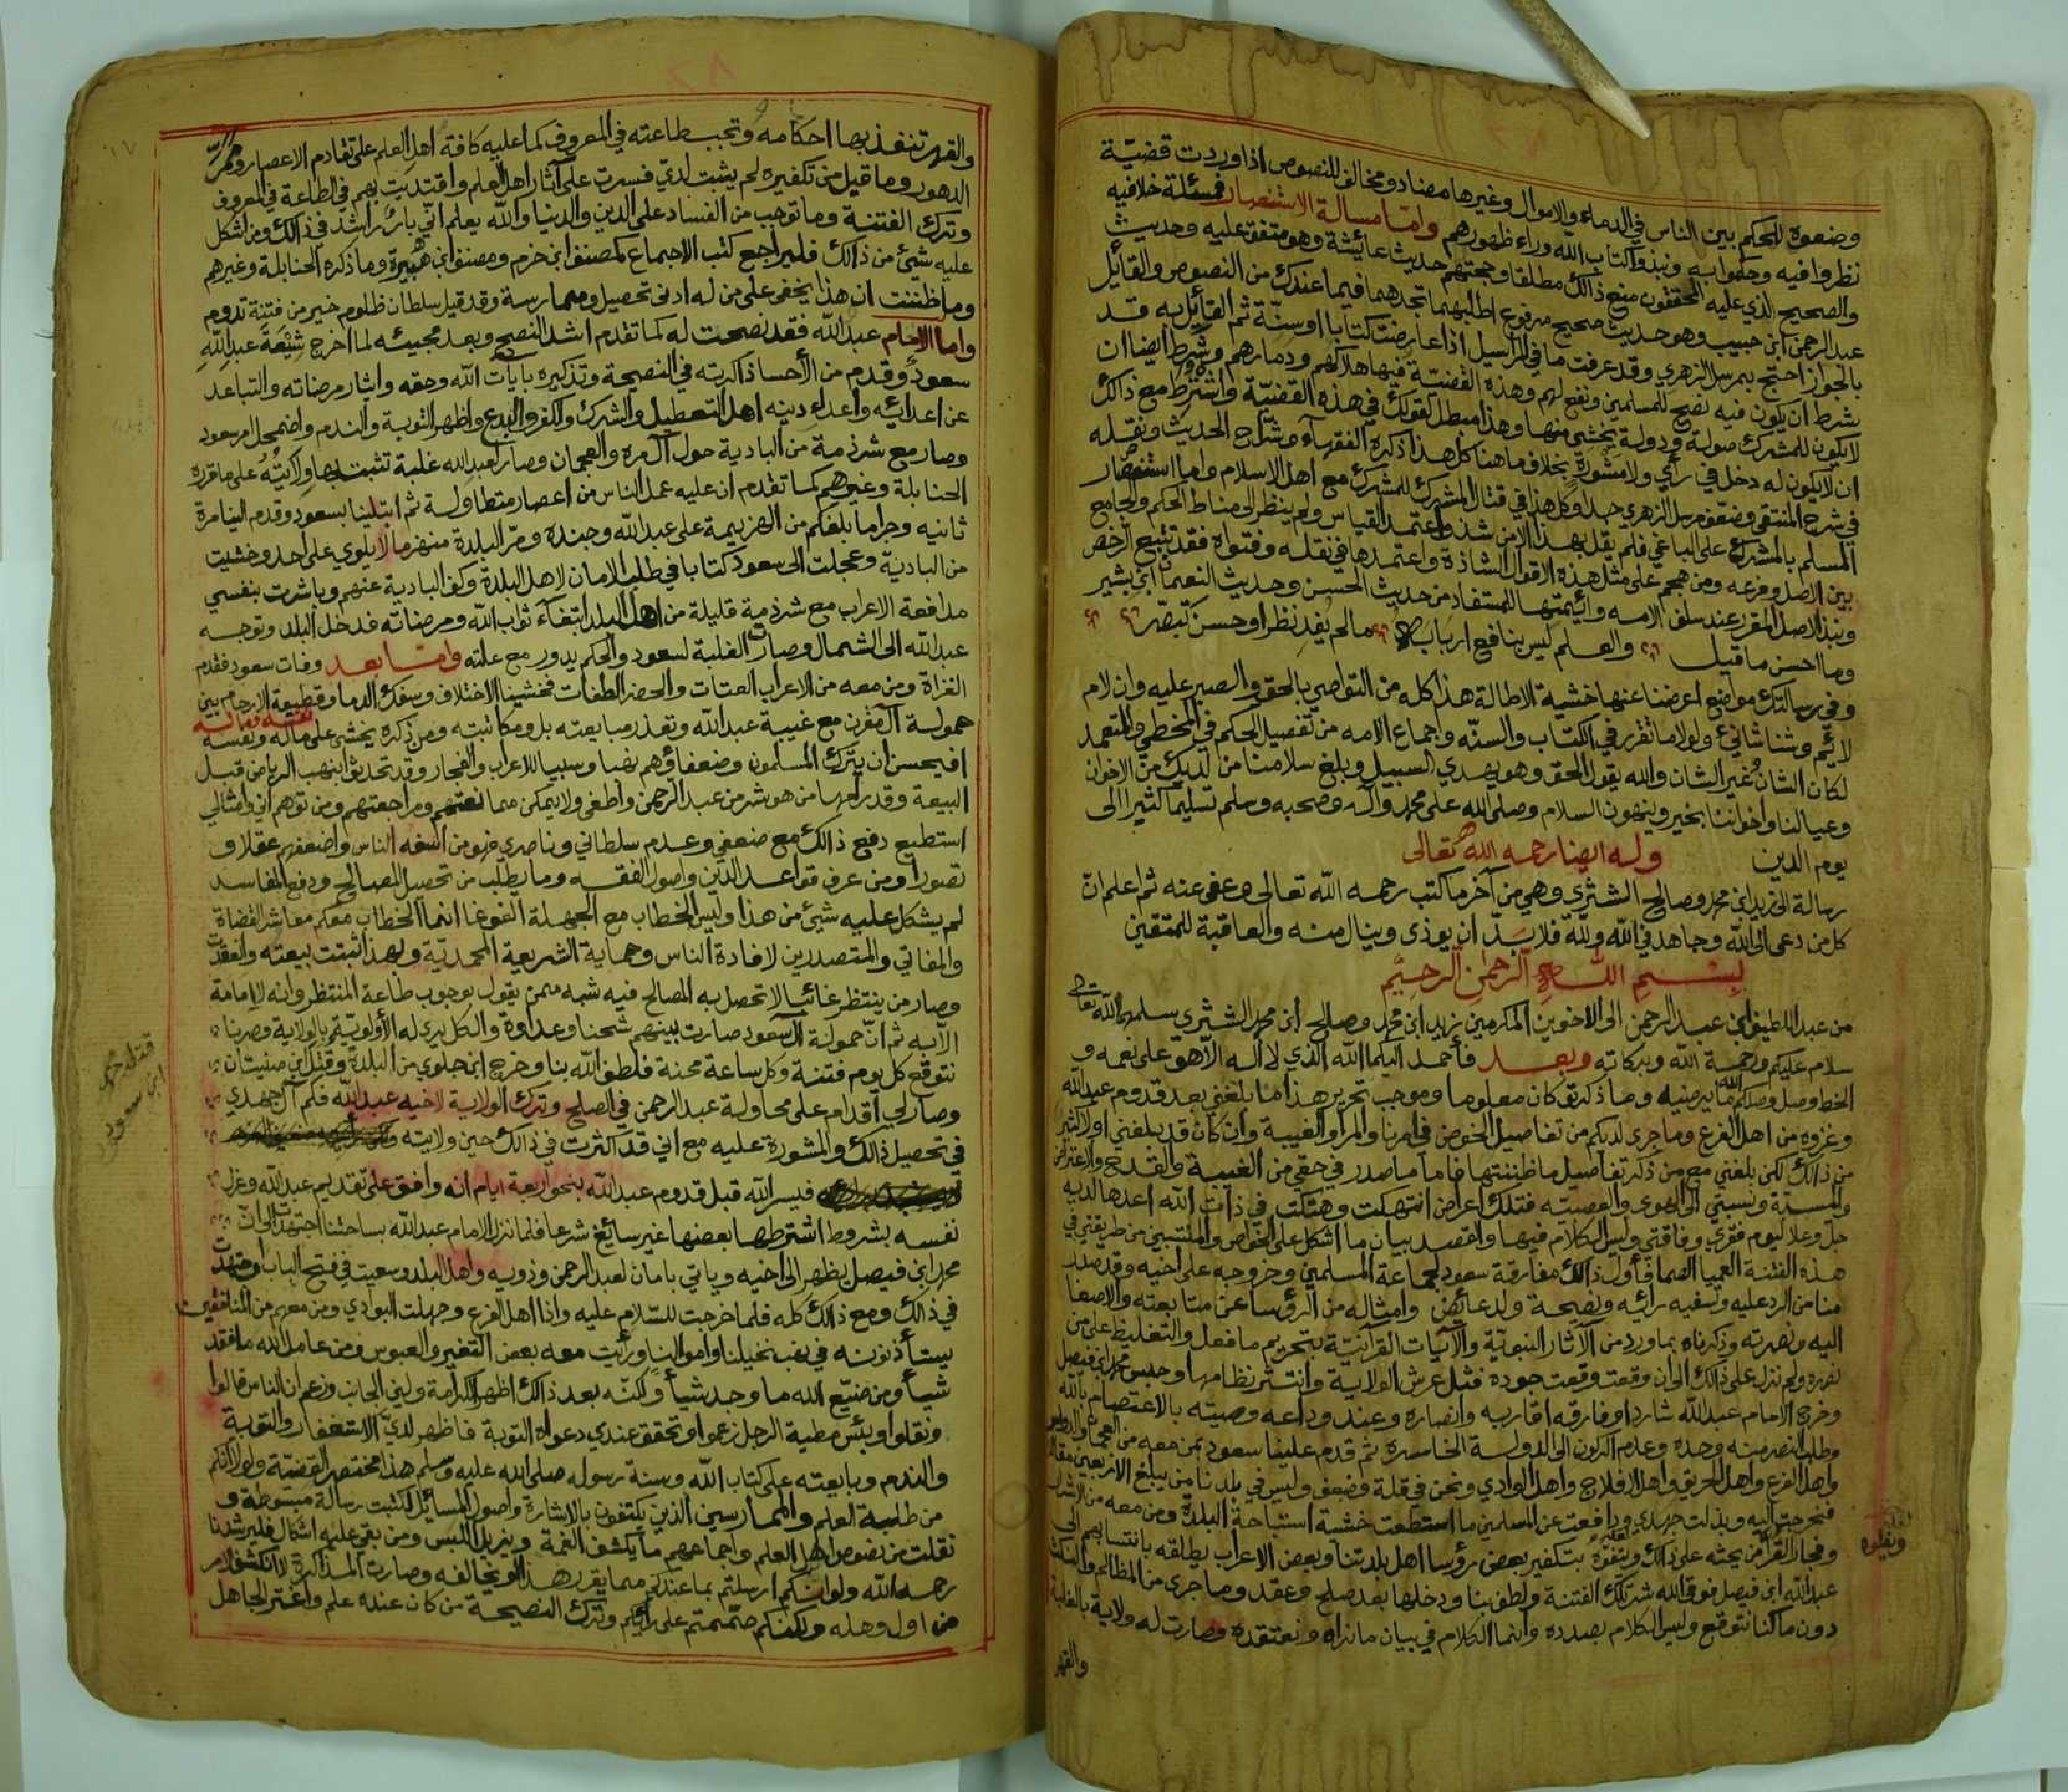 وضعوه للحكم بين الناس في الدماء والاموال وغيرها مضاد ومخالف للنصوص اذا وردت قضيّة
نظروا فيه وحكموا به ونبذوا كتاب الله وراء ظهورهم واما مسالة الاستنصار فمسئلة خلافيه
والصحيح الذي عليه المحققون منع ذالك مطلقا وحجتهم حديث عائشة وهو متفق عليه وحديث
عبد الرحمن ابن حبيب وهو حديث صحيح مرفوع اطلبهما تجدهما فيما عندك من النصوص والقائل
بالجواز احتج بمرسل الزهري وقد عرفت ما في المراسيل اذا عارضت كتابا او سنّة ثم القائل به قد
شرط ان يكون فيه نصح للمسلمين ونفع لهم وهذه القضيّة فيها هلاكهم ودمارهم وشرط ايضا ان
لا يكون للمشرك صولة ودولة يخشى منها وهذا مبطل لقولك في هذه القضيّة واشترط مع ذالك
ان لا يكون له دخل في راي ولا مشورة بخلاف ما هنا كل هذا ذكره الفقهاء وشراح الحديث ونقله
في شرح المنتقى وضعّف مرسل الزهري جدا وكل هذا في قتال المشرك للمشرك مع اهل الاسلام واما استنصار
المسلم بالمشرك على الباغي فلم يقل بهذا الا من شذ واعتمد القياس ولم ينظر الى مناط الحكم والجامع
بين الاصل وفرعه ومن هجم على مثل هذه الاقوال الشاذة واعتمدها في نقله وفتواه فقد تتبع الرخص
ونبذ الاصل المقرر عند سلف الامه وائمتها المستفاد من حديث الحسن وحديث النعمان ابن بشير
وما احسن ما قيل والعلم ليس بنافع اربابه ما لم يفد نظرا وحسن تبصّر
وفي رسالتك مواضع اعرضنا عنها خشية الاطالة هذا كله من التواصي بالحق والصبر عليه وان لام
لائم وشنا شاني ولولا ما تقرر في الكتاب والسنّه واجماع الامه من تفصيل الحكم في المخطي والمتعمد
لكان الشان غير الشان والله يقول الحق وهو يهدي السبيل وبلغ سلامنا من لديك من الاخوان
وعيالنا واخواننا بخير وينهون السلام وصلى الله على محمد وآله وصحبه وسلم تسليما كثيرا الى
يوم الدين وله ايضا رحمه الله تعالى
رسالة الى زيد ابن محمد وصالح الشثري وهي من آخر ما كتب رحمه الله تعالى وعفى عنه ثم اعلم ان
كل من دعى الى الله وجاهد في الله ولله فلا بدّ ان يوذى وينال منه والعاقبة للمتقين
بسم الله الرحمن الرحيم
من عبد اللطيف ابن عبد الرحمن الى الاخوين المكرمين زيد ابن محمد وصالح ابن محمد الشثري سلمهما الله تعالى
سلام عليكم ورحمة الله وبركاته وبعد فاحمد اليكما الله الذي لا اله الا هو على نعمه و
الخط وصل وصلكم الله ما يرضيه وما ذكرتو كان معلوما وموجب تحرير هذا ما بلغني بعد قدوم عبد الله
وغزوه من اهل الفرع وما جرى لديكم من تفاصيل الخوض في امرنا والمراء والغيبة وان كان قد بلغني اولا كثير
من ذالك لكن بلغني مع من ذكر تفاصيل ما ظننتها فاما ما صدر في حقي من الغيبة والقدح والاعتراض
والمسبّة ونسبتي الى الهوى والعصبيّه فتلك اعراض انتهكت وهتكت في ذات الله اعدها لديه
جل وعلا ليوم فقري وفاقتي وليس الكلام فيها والقصد بيان ما اشكل على الخواص والمنتسبين من طريقتي في
هذه الفتنة العميا الصما فاول ذالك مفارقة سعود لجماعة المسلمين وخروجه على اخيه وقد صدر
منا من الرد عليه وتسفيه رأيه ونصيحة ولد عائض وامثاله من الرؤسا عن متابعته والاصغا
اليه ونصرته وذكرناه بما ورد من الآثار النبويّة والآيات القرآنيّة بتحريم ما فعل والتغليظ على من
نصره ولم نزل على ذالك الى ان وقعت وقعت جوده فثل عرش الولاية وانتثر نظامها وحبس محمد ابن فيصل
وخرج الامام عبد الله شاردا وفارقه اقاربه وانصاره وعند وداعه وصيته بالاعتصام بالله
وطلب النصر منه وحده وعدم الركون الى الدولة الخاسره ثم قدم علينا سعود بمن معه من العجمان والدواسر
واهل الفرع واهل الحريق واهل الافلاج واهل الوادي ونحن في قلة وضعف وليس في بلدنا من يبلغ الاربعين مقاتل
فخرجت اليه وبذلت جهدي ودافعت عن المسلمين ما استطعت خشية استباحة البلدة ومن معه من الاشرار
وفجار القرا من يحثه على ذالك ويتفوّه بتكفير بعض رؤسا اهل بلدتنا وبعض الاعراب يطلقه بانتسابهم الى
عبد الله ابن فيصل فوقى الله شر تلك الفتنة ولطف بنا ودخلها بعد صلح وعقد وما جرى من المظالم والنكث
دون ما كنا نتوقع وليس الكلام بصدده وانما الكلام في بيان ما نراه ونعتقده وصارت له ولاية بالغلبة
والقهر
والقهر تنفذ بها احكامه وتجب طاعته في المعروف كما عليه كافة اهل العلم على تقادم الاعصار وممر
الدهور وما قيل من تكفيره لم يثبت لديّ فسرت على آثار اهل العلم واقتديت بهم في الطاعة في المعروف
وترك الفتنة وما توجب من الفساد على الدين والدنيا والله يعلم انّي بارّ راشد في ذالك ومن اشكل
عليه شئ من ذالك فليراجع كتب الاجماع كمصنف ابن حزم ومصنف ابن هبيرة وما ذكره الحنابلة وغيرهم
وما ظننت ان هذا يخفى على من له ادنى تحصيل وممارسة وقد قيل سلطان ظلوم خير من فتنة تدوم
واما الامام عبد الله فقد نصحت له كما تقدم اشد النصح وبعد مجيئه لما اخرج شيعة عبد الله
سعود وقدم من الأحسا ذاكرته في النصيحة وتذكيره بايات الله وحقه وايثار مرضاته والتباعد
عن اعدائه واعداء دينه اهل التعطيل والشرك والكفر والبدع واظهر التوبة والندم واضمحل امر سعود
وصار مع شرذمة من البادية حول آل مره والعجمان وصار لعبد الله غلبة تثبت بها ولايته على ما قرره
الحنابلة وغيرهم كما تقدم ان عليه عمل الناس من اعصار متطاولة ثم ابتلينا بسعود وقدم الينا مرة
ثانيه وجرا ما بلغكم من الهزيمة على عبد الله وجنده ومرّ البلدة منهزما لا يلوي على احد وخشيت
من البادية وعجلت الى سعود كتابا في طلب الامان لاهل البلدة وكف البادية عنهم وباشرت بنفسي
مدافعة الاعراب مع شرذمة قليلة من اهل البلد ابتغاء ثواب الله ومرضاته فدخل البلد وتوجه
عبد الله الى الشمال وصارت الغلبة لسعود والحكم يدور مع علته واما بعد وفات سعود فقدم
الغزاة ومن معه من الاعراب العتات والحضر الطغات فخشينا الاختلاف وسفك الدما وقطيعة الارحام بين
حمولة آل مقرن مع غيبة عبد الله وتعذر مبايعته بل ومكاتبته ومن ذكره يخشى على ماله ونفسه
نفسه وماله
افيحسن ان يترك المسلمون وضعفاؤهم نهبا وسبيا للاعراب والفجار وقد تحدثوا بنهب الرياض قبل
البيعة وقد رامها من هو شر من عبد الرحمن واطغى ولا يمكن ممانعتهم ومراجعتهم ومن توهم اني وامثالي
استطيع دفع ذالك مع ضعفي وعدم سلطاني وناصري فهو من اسفه الناس واضعفهم عقلا و
تصورا ومن عرف قواعد الدين واصول الفقه وما يطلب من تحصيل المصالح ودفع المفاسد
لم يشكل عليه شئ من هذا وليس الخطاب مع الجهلة الغوغا انما الخطاب معكم معاشر القضاة
والمفاتي والمتصدرين لافادة الناس وحماية الشريعة المحمديّة وبهذا ثبتت بيعته وانعقدت
وصار من ينتظر غائبا لا تحصل به المصالح فيه شبه ممن يقول بوجوب طاعة المنتظر وانه لا امامة
الا به ثم انّ حمولة آل سعود صارت بينهم شحنا وعداوة والكل يرى له الأولويّة بالولاية وصرنا
نتوقع كل يوم فتنة وكل ساعة محنة فلطف الله بنا وخرج ابن جلوي من البلدة وقتل ابن صنيتان
وصار لي اقدام على محاولة عبد الرحمن في الصلح وترك الولاية لاخيه عبد الله فلم آل جهدي
في تحصيل ذالك والمشورة عليه مع اني قد اكثرت في ذالك حين ولايته
فيسر الله قبل قدوم عبد الله بنحو اربعة ايام انه وافق على تقديم عبد الله وعزل
نفسه بشروط اشترطها بعضها غير سايغ شرعا فلما نزل الامام عبد الله بساحتنا اجتهدت الى ان
محمد ابن فيصل يظهر الى اخيه وياتي بامان لعبد الرحمن وذويه واهل البلد وسعيت في فتح الباب واجتهدت
في ذالك ومع ذالك كله فلما خرجت للسّلام عليه واذا اهل الفرع وجهلت البوادي ومن معهم من المنافقين
يستأذنونه في نهب نخيلنا واموالنا ورأيت معه بعض التغير والعبوس ومن عامل الله ما فقد
شيأ ومن ضيّع الله ما وجد شيأ ولكنّه بعد ذالك اظهر الكرامة ولين الجانب وزعم ان الناس قالوا
ونقلوا وبئس مطية الرجل زعموا وتحقق عندي دعواه التوبة فاظهر لديّ الاستغفار والتوبة
والندم وبايعته على كتاب الله وسنة رسوله صلى الله عليه وسلم هذا مختصر القضيّة ولولا انكم
من طلبة العلم والممارسين الذين يكتفون بالاشارة واصول المسائل لكتبت رسالة مبسوطة و
نقلت من نصوص اهل العلم واجماعهم ما يكشف الغمة ويزيل اللبس ومن بقي عليه اشكال فليرشدنا
رحمه الله ولو انكم ارسلتم بما عندكم مما يقرر هذا او يخالفه وصارت المذاكرة لانكشف الامر
من اول وهله ولكنكم صممتم على رأيكم وترك النصيحة من كان عنده علم واغتر الجاهل
قتله محمد
ابن سعود